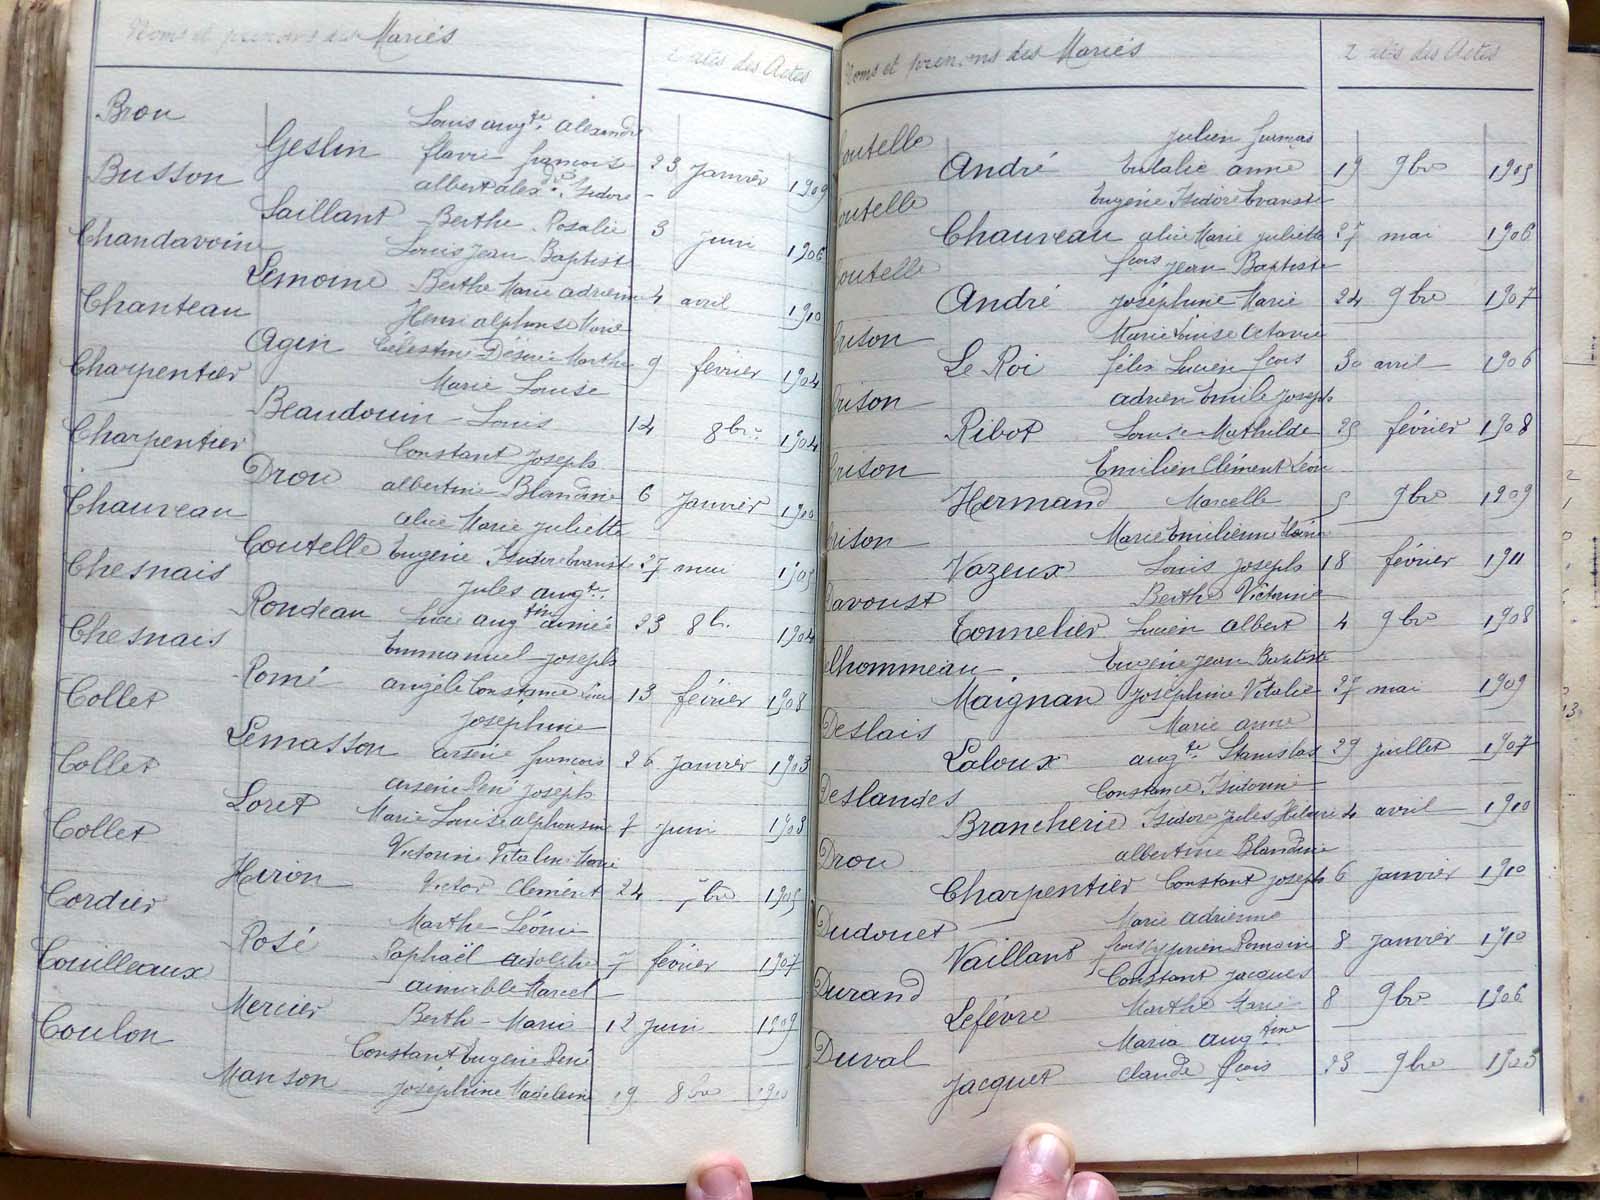 Noms et prénoms des Mariés
Dates des Actes
Bron Louis augte. alexandre
Geslin flavie françois 23 Janvier 1909
Busson albert alexdre Isidore
Saillant Berthe Rosalie 3 Juin 1906
Chandavoine Louis Jean Baptiste
Lemoine Berthe Marie adrienne 4 avril 1910
Chanteau Henri alphonse Marie
Agin Célestine Désirée Marthe 9 février 1904
Charpentier Marie Louise
Beaudouin Louis 14 8bre 1904
Charpentier Constant Joseph
Drou albertine Blandine 6 Janvier 1910
Chauveau alice Marie Juliette
Coutelle Eugène Isidore Evariste 27 mai 1905
Chesnais Jules augte.
Rondeau Lucie augtine aimée 23 8b. 1904
Chesnais Emmanuel Joseph
Romé angèle Constance 13 février 1908
Collet Joséphine
Lemasson arsène françois 26 Janvier 1903
Collet arsène René Joseph
Loret Marie Louise alphonsine 7 Juin 1903
Collet Victorine Vitaline Marie
Hiron Victor Clément 24 7bre 1905
Cordier Marthe Léonie
Rosé Raphaël 7 février 1907
Couilleaux aimable Marcel
Mercier Berthe Marie 12 Juin 1909
Coulon Constant Eugène René
Manson Joséphine Madeleine 19 8bre 1910
Noms et prénoms des Mariés
Dates des Actes
outelle Julien
André Eulalie anne 19 9bre 1905
outelle Eugène Isidore Evariste
Chauveau alice Marie Juliette 27 mai 1906
outelle fçois Jean Baptiste
André Joséphine Marie 24 9bre 1907
rison Marie Louise Octavie
Le Roi félix Lucien fçois 30 avril 1906
rison adrien Emile Joseph
Ribot Louise Mathilde 25 février 1908
rison Emilien Clément Léon
Hermand Marcelle 5 9bre 1909
rison Marie Emilienne
Vazeux Louis Joseph 18 février 1911
Davoust Berthe Victorine
Tonnelier Lucien albert 4 9bre 1908
elhommeau Eugène Jean Baptiste
Maignan Joséphine Vitalie 27 mai 1909
Deslais Marie anne
Laloux augte Stanislas 29 Juillet 1907
Deslandes Constance Isidorine
Brancherie Isidore Jules Hilaire 4 avril 1910
Drou albertine Blandine
Charpentier Constant Joseph 6 Janvier 1910
Dudouet Marie adrienne
Vaillant fçois Cyprien Romain 8 Janvier 1910
Durand Constant Jacques
Lefévre Marthe Marie 8 9bre 1906
Duval Maria augtine
Jacquet Claude fçois 23 9bre 1903